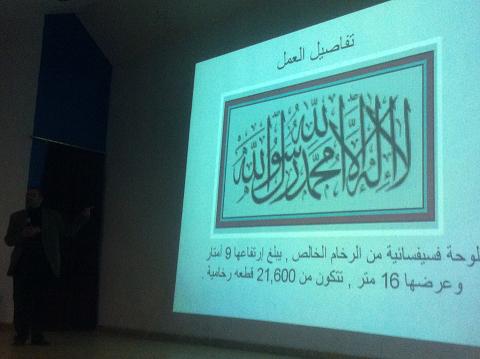 تفاصيل العمل
لا إله إلا الله محمد رسول الله
لوحة فسيفسائية من الرخام الخالص , يبلغ إرتفاعها 9 أمتار
وعرضها 16 متر , تتكون من 21,600 قطعه رخامية .